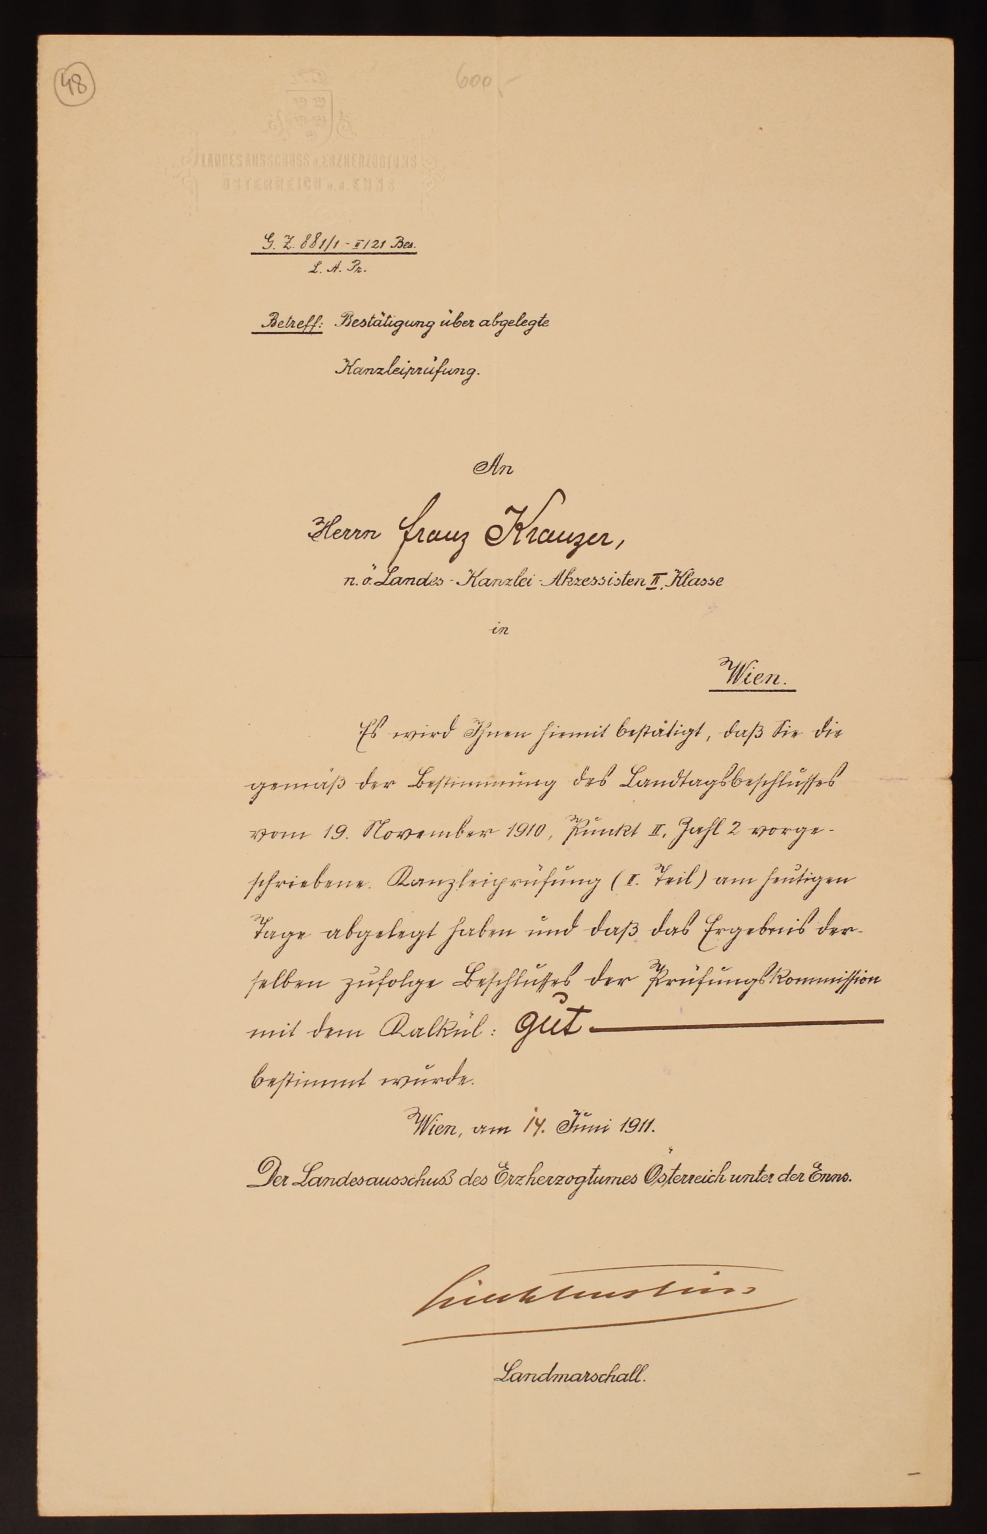 48
600,-
LANDESAUSSCHUSS D. ERZHERZOGTUMS
ÖSTERREICH U. D. ENNS
G. Z. 881/1 - II/21 Bes.
L. A. Pr.
Betreff: Bestätigung über abgelegte
Kanzleiprüfung.
An
Herrn Franz Krauzer,
n. ö. Landes-Kanzlei-Akzessisten II. Klasse
in
Wien.
Es wird Ihnen hiemit bestätigt, daß Sie die
gemäß der Bestimmung des Landtagsbeschlusses
vom 19. November 1910, Punkt II, Zahl 2 vorge-
schriebene Kanzleiprüfung (I. Teil) am heutigen
Tage abgelegt haben und daß das Ergebnis der-
selben zufolge Beschlusses der Prüfungskommission
mit dem Kalkül: gut
bestimmt wurde.
Wien, am 14. Juni 1911.
Der Landesausschuß des Erzherzogtumes Österreich unter der Enns.
Liechtenstein
Landmarschall.